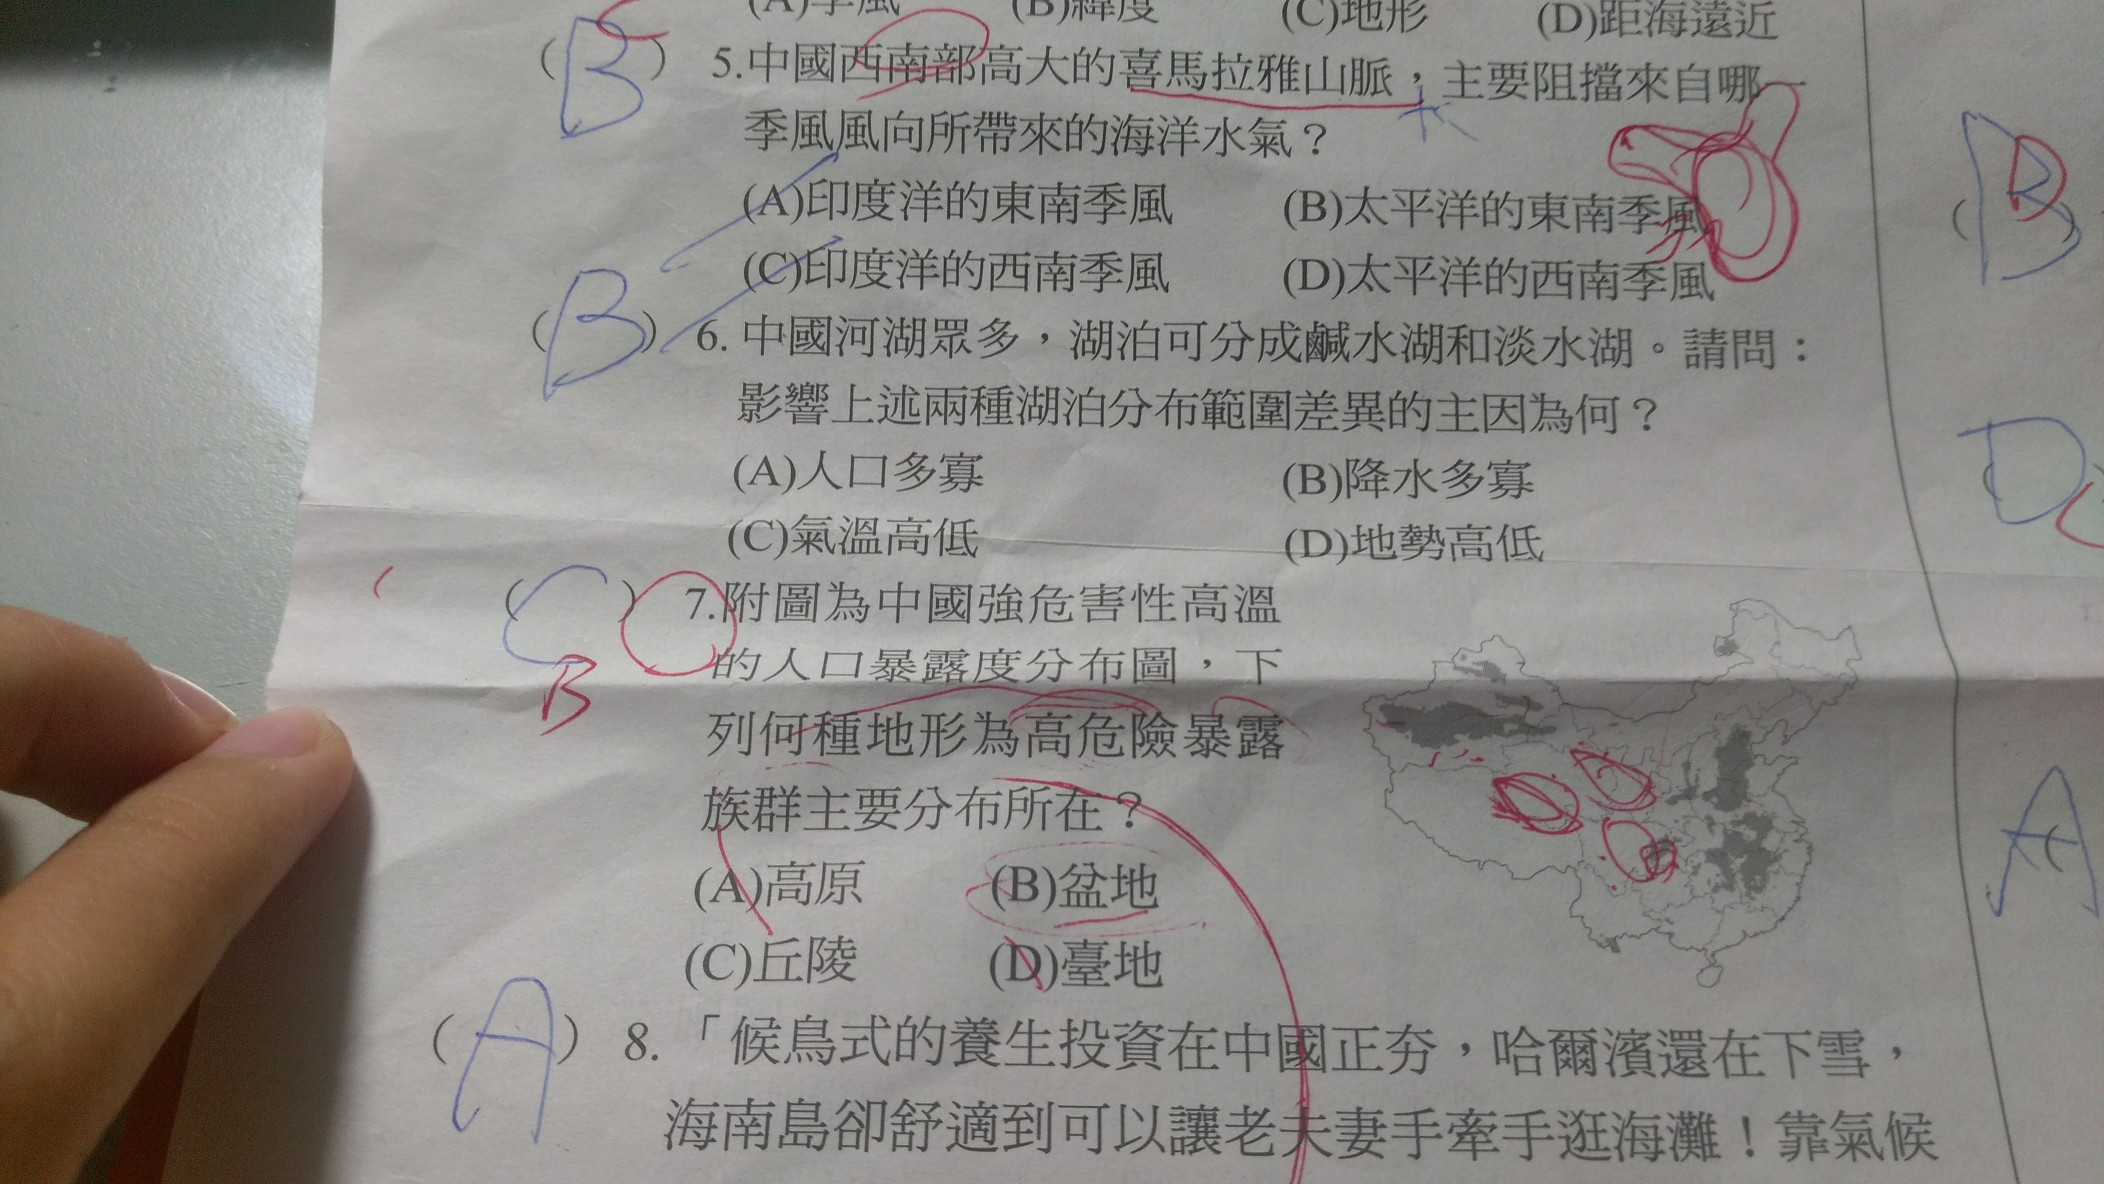 (A)季風 (B)緯度 (C)地形 (D)距海遠近
(B) 5.中國西南部高大的喜馬拉雅山脈，主要阻擋來自哪一
季風風向所帶來的海洋水氣？
(A)印度洋的東南季風 (B)太平洋的東南季風
(C)印度洋的西南季風 (D)太平洋的西南季風
(B) 6. 中國河湖眾多，湖泊可分成鹹水湖和淡水湖。請問：
影響上述兩種湖泊分布範圍差異的主因為何？
(A)人口多寡 (B)降水多寡
(C)氣溫高低 (D)地勢高低
(C) 7.附圖為中國強危害性高溫
B
的人口暴露度分布圖，下
列何種地形為高危險暴露
族群主要分布所在？
(A)高原 (B)盆地
(C)丘陵 (D)臺地
(A) 8. 「候鳥式的養生投資在中國正夯，哈爾濱還在下雪，
海南島卻舒適到可以讓老夫妻手牽手逛海灘！靠氣候
B
D
A